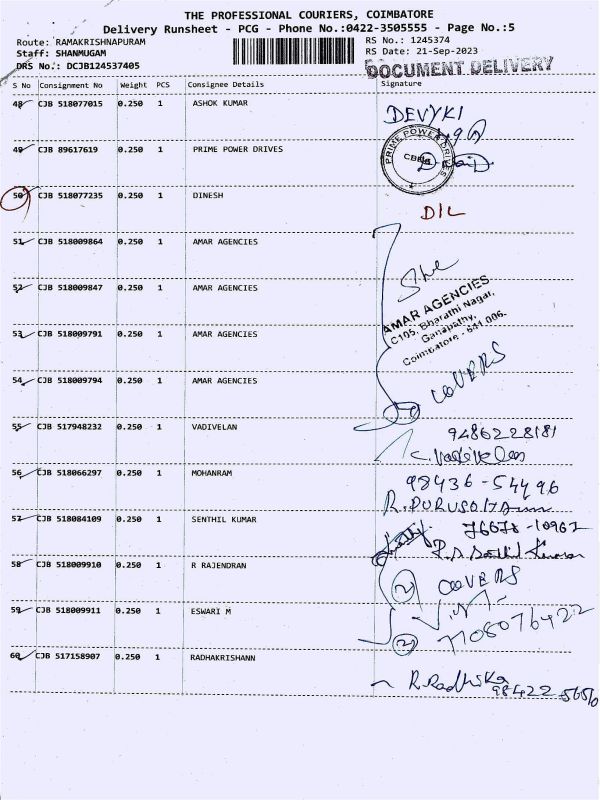 THE PROFESSIONAL COURIERS, COIMBATORE
Delivery Runsheet - PCG - Phone No.:0422-3505555 - Page No.:5
Route: RAMAKRISHNAPURAM
Staff: SHANMUGAM
DRS No.: DCJB124537405
RS No.: 1245374
RS Date: 21-Sep-2023
DOCUMENT DELIVERY
S No Consignment No Weight PCS Consignee Details Signature
48 CJB 518077015 0.250 1 ASHOK KUMAR DEVYKI
49 CJB 89617619 0.250 1 PRIME POWER DRIVES
PRIME POWER DRIVES
50 CJB 518077235 0.250 1 DINESH D/L
51 CJB 518009864 0.250 1 AMAR AGENCIES
52 CJB 518009847 0.250 1 AMAR AGENCIES
AMAR AGENCIES
C105, Bharathi Nagar,
Ganapathy,
Coimbatore - 641 006.
53 CJB 518009791 0.250 1 AMAR AGENCIES
54 CJB 518009794 0.250 1 AMAR AGENCIES
COVERS
55 CJB 517948232 0.250 1 VADIVELAN 9486228181
C. Vadivelan
56 CJB 518066297 0.250 1 MOHANRAM 98436-54496
57 CJB 518084109 0.250 1 SENTHIL KUMAR
58 CJB 518009910 0.250 1 R RAJENDRAN 2 COVERS
59 CJB 518009911 0.250 1 ESWARI M
2 7708076422
60 CJB 517158907 0.250 1 RADHAKRISHANN R. Radhika